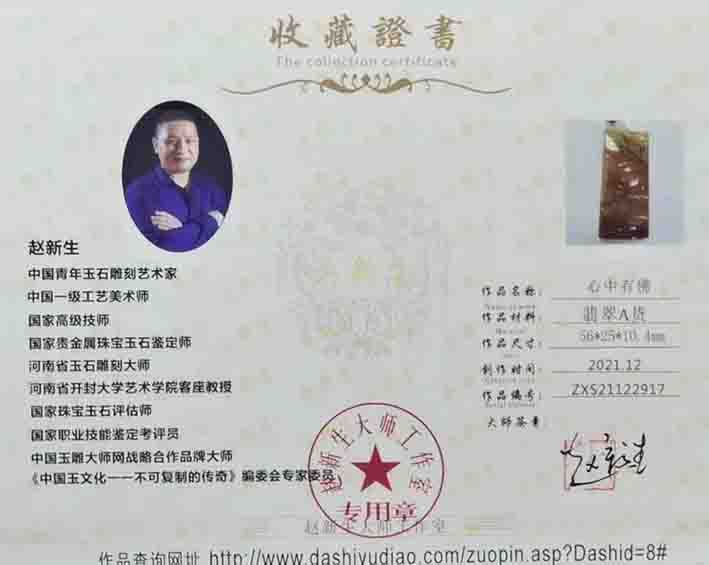 收藏證書
The collection certificate
赵新生
中国青年玉石雕刻艺术家
中国一级工艺美术师
国家高级技师
国家贵金属珠宝玉石鉴定师
河南省玉石雕刻大师
河南省开封大学艺术学院客座教授
国家珠宝玉石评估师
国家职业技能鉴定考评员
中国玉雕大师网战略合作品牌大师
《中国玉文化一一不可复制的传奇》编委会专家委员
作品名称： 心中有佛
作品材料： 翡翠A货
作品尺寸： 56*25*10.4mm
创作时间： 2021.12
作品编号： ZXS21122917
大师签章：
赵新生
赵新生大师工作室
专用章
赵新生大师工作室
作品查询网址 http://www.dashiyudiao.com/zuopin.asp?Dashid=8#